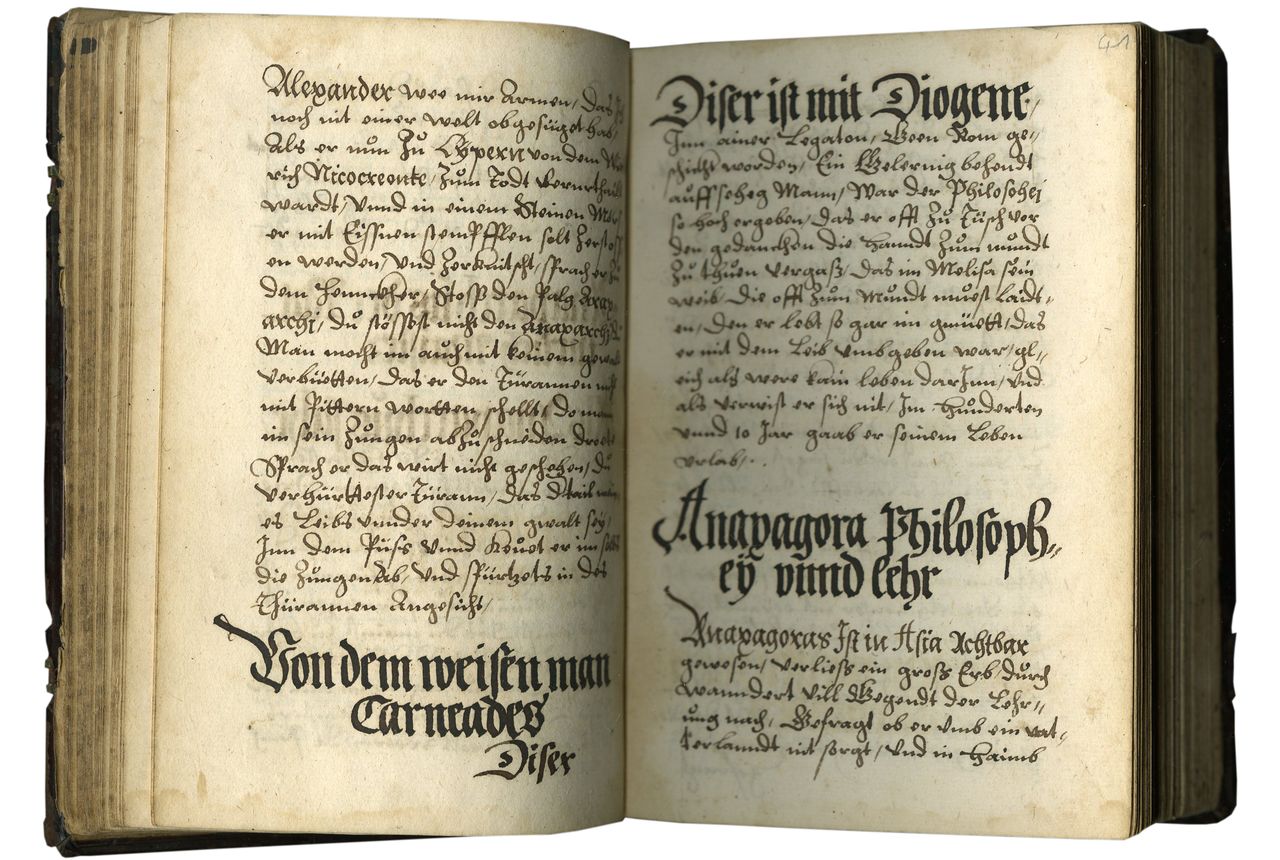 Alexander wee mir Armen / Das
noch nit einer welt obgesiget hab /
Als er nun Zu Cypern von dem
rich Nicocreonte / Zum Todt verurthail
wardt / Vnnd in einem Steinen
er mit Eissnen stempfflen solt Zerstoss
en werden / Vnd Zerknitscht / sprach er Zu
dem Hennckher / Stoss den Palg Anax
archj / du stössest nicht den Anaxarchj
Man mocht im auch mit keinem gewalt
verbietten / Das er den Türannen nit
mit Pittern wortten schellt / Do man
im sein Zungen abZuschneiden droet
Sprach er das wirt nicht geschehen / du
verhürttester Türann / Das d tail
es Leibs vnnder deinem gwalt sey /
Inn dem Püss Vnnd Keuet er im selbs
die Zungen ab / Vnd spürtzets in des
Thürannen Angesicht /
Von dem weisen man
Carneades
Diser
41
Diser ist mit Diogene /
Inn ainer Legation / Geen Rom ge-
schickt worden / Ein Gelernig behendt
auffseheg Mann / War der Philosophej
so hoch ergeben / Das er offt Zu Tüsch vor
den gedanckhen die Handt Zum mundt
Zu thuen vergass / Das im Melisa sein
weib / Die offt Zum Mundt muest laidt-
en / Den er lebt so gar im gmüett / das
er mit dem Leib vmbgeben war / gl-
eich als were kain leben darInn / Vnd
als verwist er sich nit / Im Hunderten
vnnd 10 Jar gaab er seinem Leben
vrlab / .
Anaxagora Philosoph-
ey vnnd lehr
Anaxagoras Ist in Asia Achtbar
gewesen / verliess ein gross Erb / durch
wanndert vill Gegendt der Lehr-
ung nach / Gefragt ob er vmb ein vat-
terlanndt nit sorgt / Vnd in Haimb